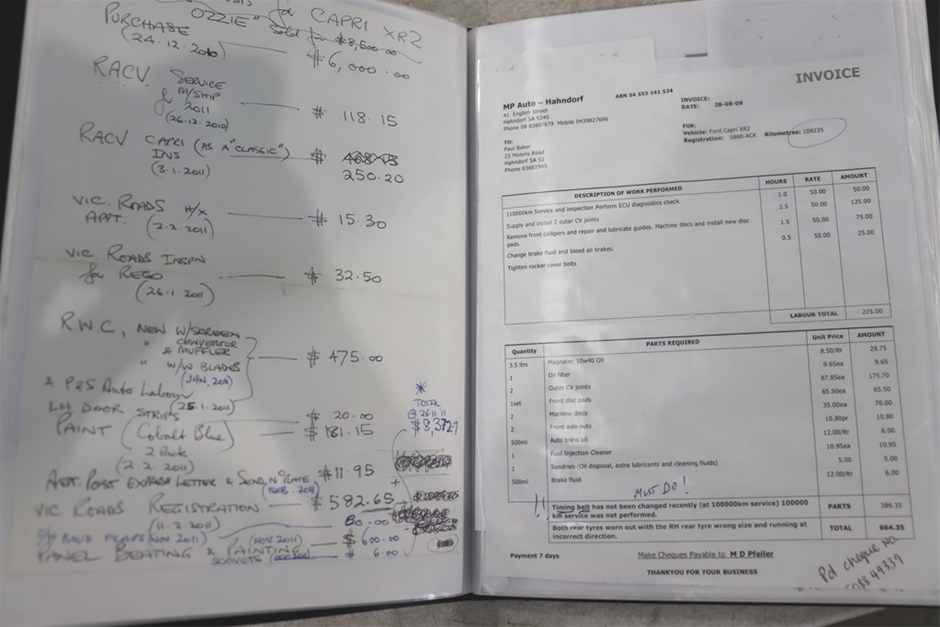 for CAPRI XR2
OZZIE" Sold for $8,500.00
PURCHASE
(24.12.2010) $6,000.00
RACV SERVICE
M/SHIP
for 2011 $118.15
(26.12.2010)
RACV CAPRI (AS A "CLASSIC") $
INS 250.20
(3.1.2011)
VIC. ROADS H/X
APPT. $15.30
(2.2.2011)
VIC ROADS INSPN
for REGO $32.50
(26.1.2011)
R.W.C, NEW W/SCREEN
" CONVERTOR
& MUFFLER
" W/W BLADES $475.00
(JAN, 2011)
& PRS Auto Labour
(25.1.2011)
LH DOOR STRIPS $20.00
PAINT (Cobalt Blue) $181.15
2 Pack
(2.2.2011)
AUST. POST EXPRESS LETTER & SEND N'PLATE $11.95
(FEB. 2011)
VIC ROADS REGISTRATION $582.65
(11.2.2011)
(NOV 2011) 80.00
PANEL BEATING & PAINTING (NOV 2011) $600.00
$6.00
*
TOTAL
@ 26.11.11
+
INVOICE
MP Auto – Hahndorf ABN 54 553 141 524
41 English Street
Hahndorf SA 5245
Phone 08 83887879 Mobile 0439827696
INVOICE:
DATE: 28-08-09
TO:
Paul Baker
23 Molens Road
Hahndorf SA 52
Phone 83881945
FOR:
Vehicle: Ford Capri XR2
Registration: S880-ACK Kilometres: 109235
DESCRIPTION OF WORK PERFORMED HOURS RATE AMOUNT
110000km Service and inspection Perform ECU diagnostics check. 1.0 50.00 50.00
Supply and install 2 outer CV joints 2.5 50.00 125.00
Remove front callipers and repair and lubricate guides. Machine discs and install new disc 1.5 50.00 75.00
pads.
Change brake fluid and bleed all brakes. 0.5 50.00 25.00
Tighten rocker cover bolts
LABOUR TOTAL 275.00
Quantity PARTS REQUIRED Unit Price AMOUNT
3.5 ltrs Magnatec 10w40 Oil 8.50/ltr 29.75
1 Oil filter 9.65ea 9.65
2 Outer CV joints 87.85ea 175.70
1set Front disc pads 65.50ea 65.50
2 Machine discs 35.00ea 70.00
2 Front axle nuts 10.80pr 10.80
500ml Auto trans oil 12.00/ltr 6.00
1 Fuel Injection Cleaner 10.95ea 10.95
1 Sundries (Oil disposal, extra lubricants and cleaning fluids) 5.00 5.00
500ml Brake fluid 12.00/ltr 6.00
MUST DO!
!! Timing belt has not been changed recently (at 100000km service) 100000 PARTS 389.35
km service was not performed.
Both rear tyres worn out with the RH rear tyre wrong size and running at TOTAL 664.35
incorrect direction.
Payment 7 days. Make Cheques Payable to M D Pfeiler
THANKYOU FOR YOUR BUSINESS
Pd cheque No